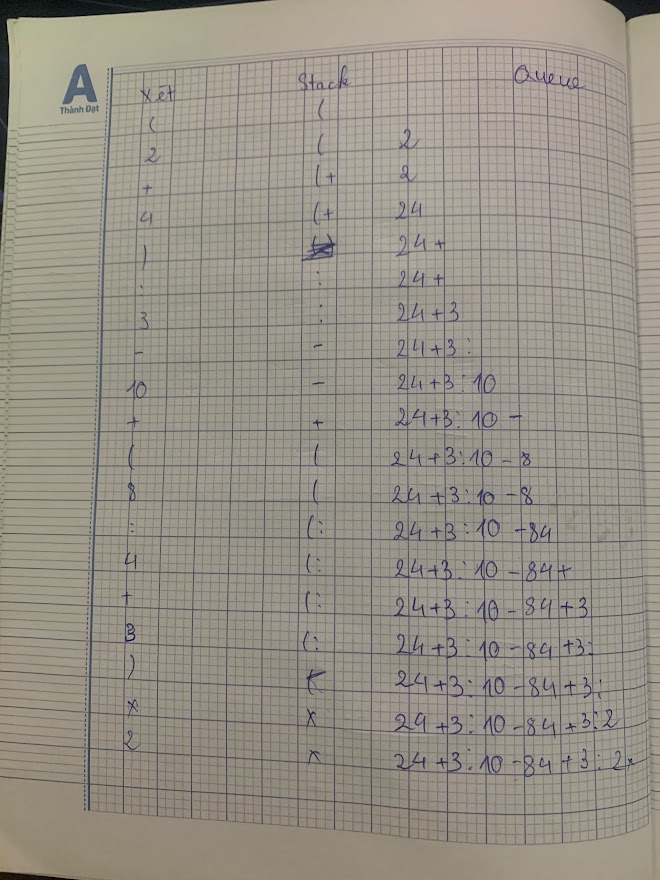 A
Thành Đạt
Xét Stack Queue
( (
2 ( 2
+ (+ 2
4 (+ 24
) 24+
: : 24+
3 : 24+3
- - 24+3:
10 - 24+3:10
+ + 24+3:10 -
( ( 24+3:10 - 8
8 ( 24+3:10 -8
: (: 24+3:10 -84
4 (: 24+3:10 -84+
+ (: 24+3:10 -84+3
3 (: 24+3:10 -84+3:
) ( 24+3:10 -84+3:
x x 24+3:10 -84+3:2
2 x 24+3:10 -84+3:2x